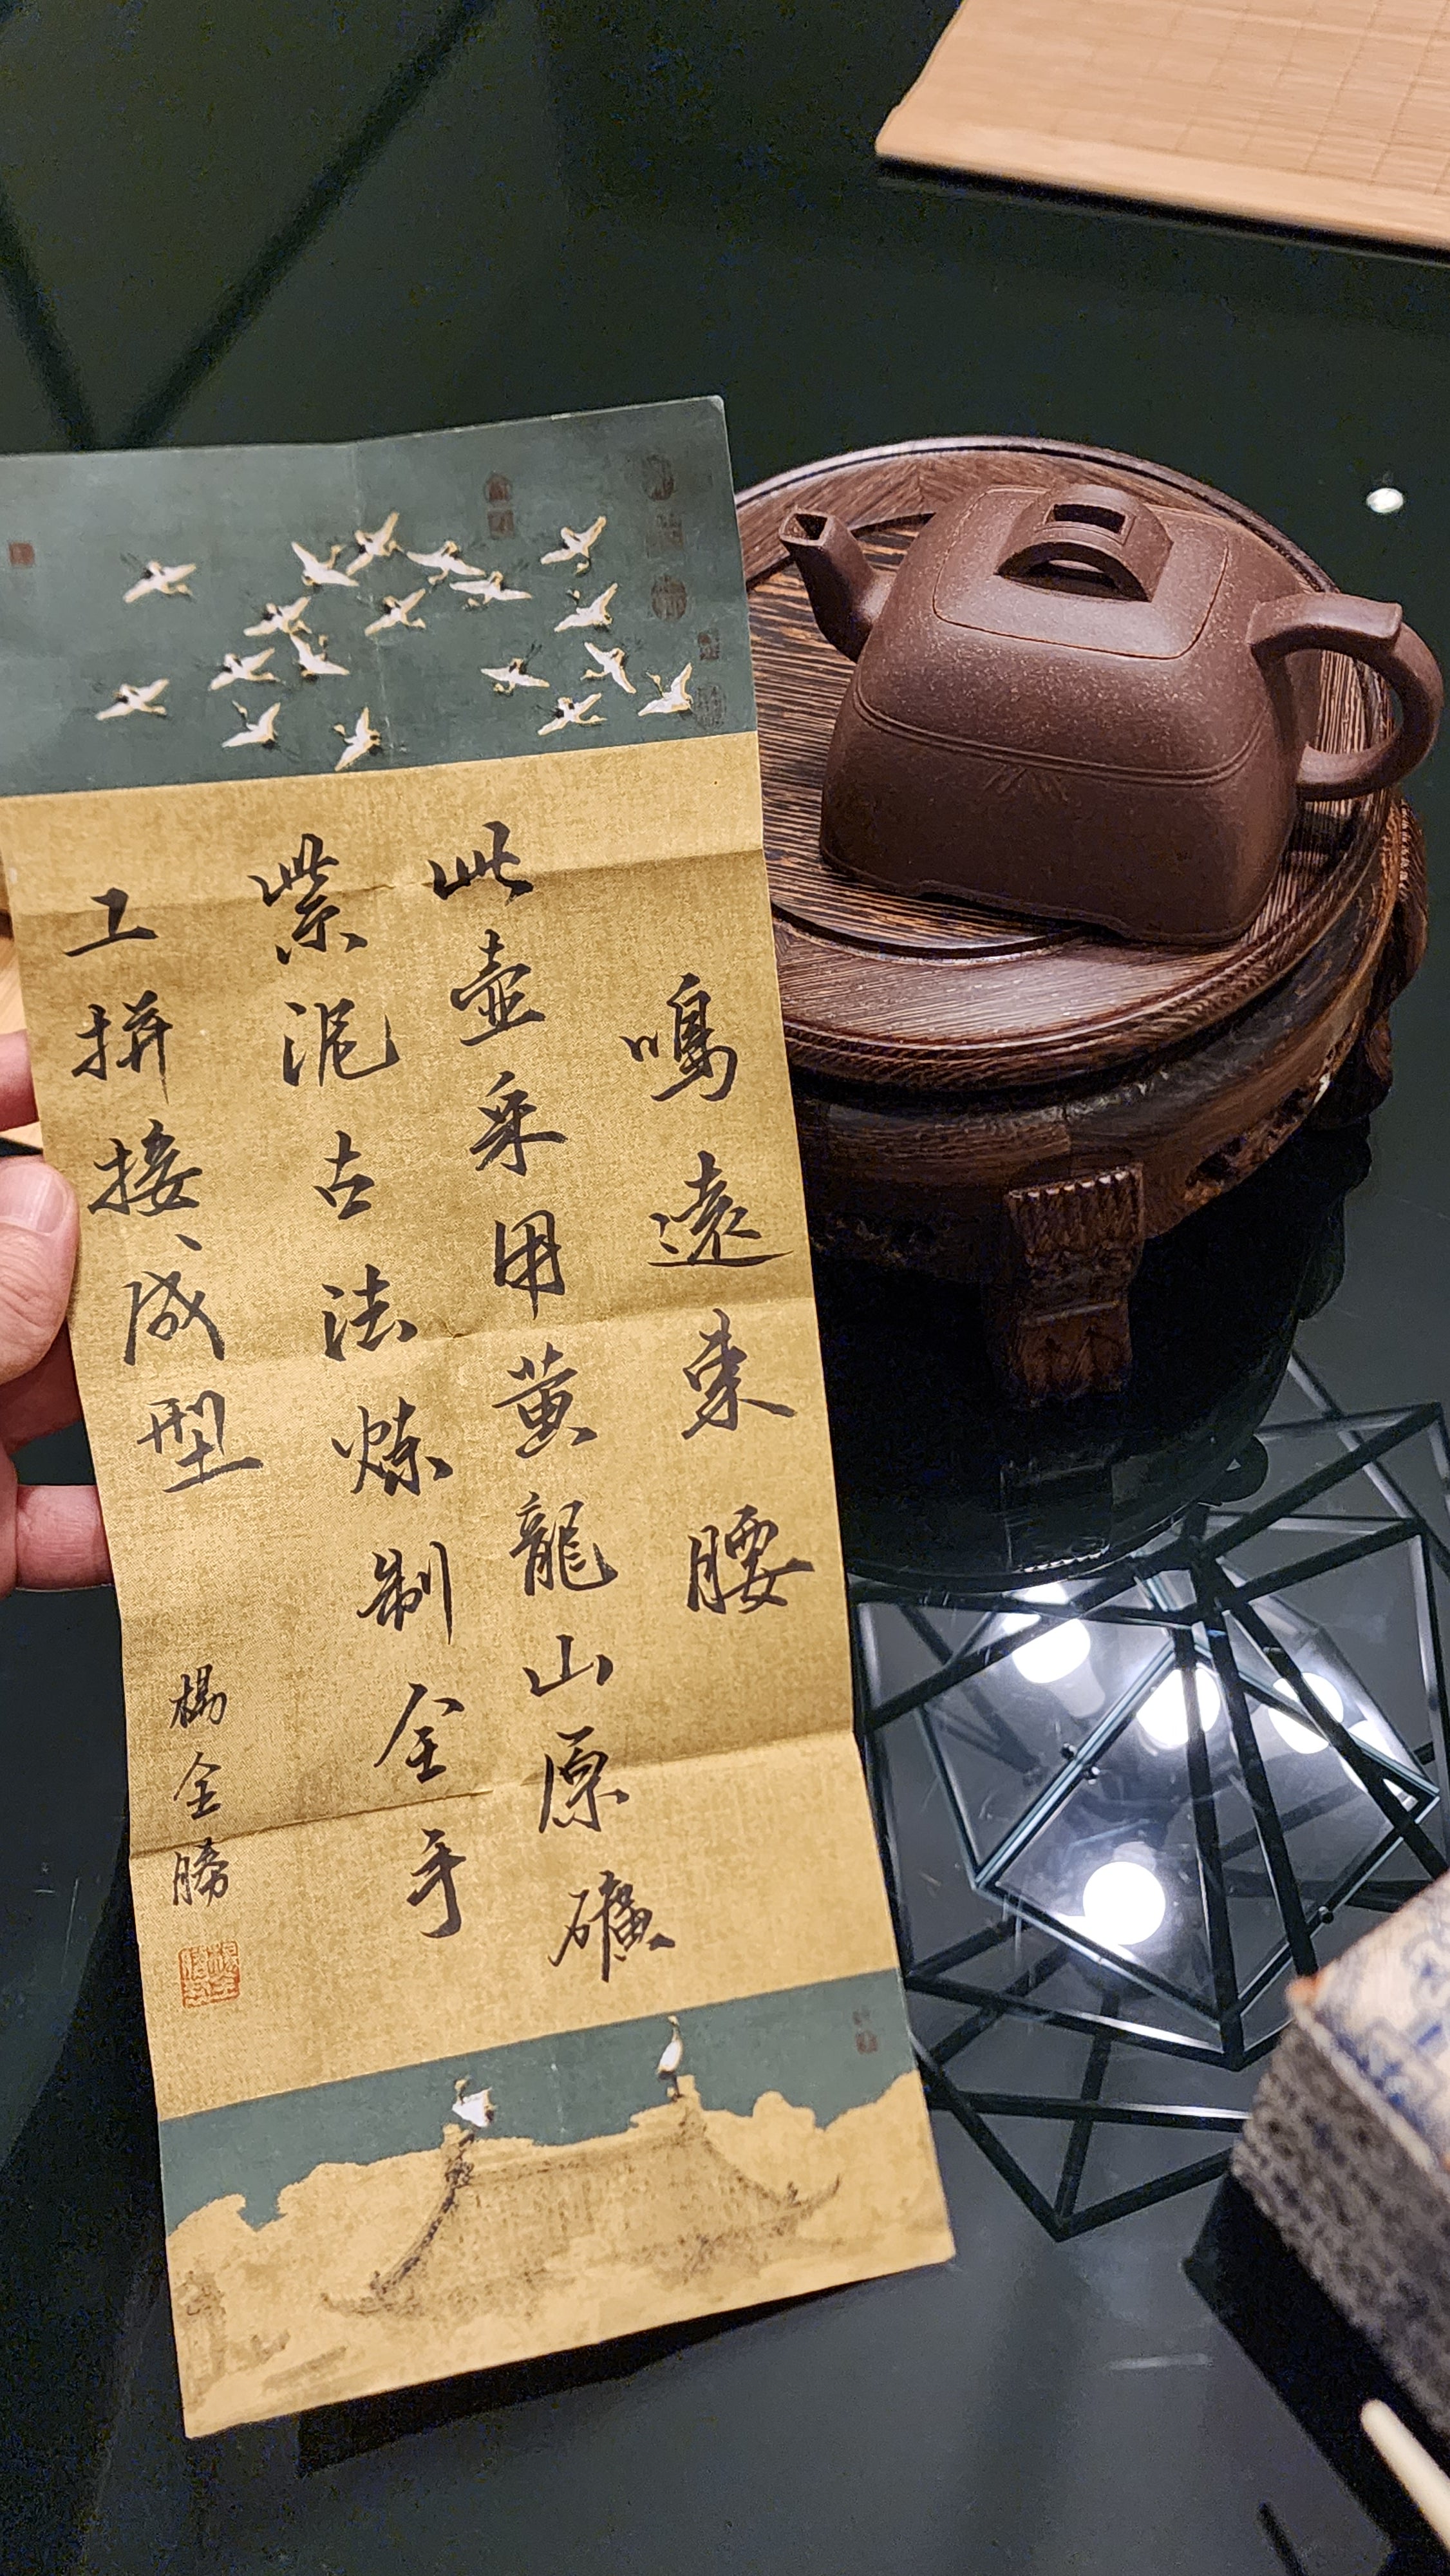 鳴遠束腰
此壺采用黄龍山原礦
紫泥古法煉制全手
工拼接成型
楊全勝